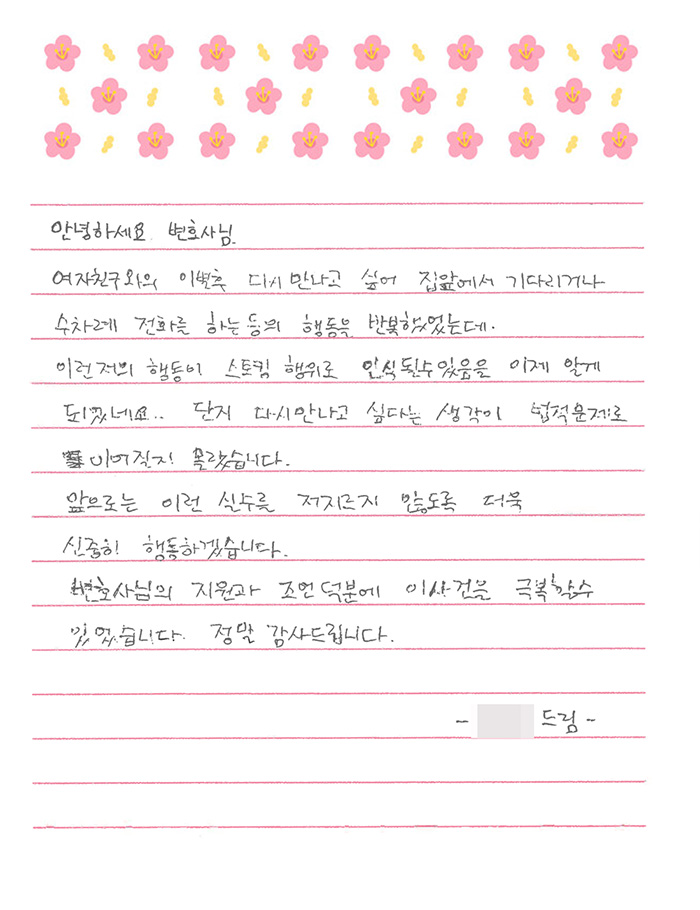 안녕하세요. 변호사님
여자친구와의 이별후 다시 만나고 싶어 집앞에서 기다리거나
수차례 전화를 하는등의 행동을 반복했었는데.
이런 저의 행동이 스토킹 행위로 인식될수있음을 이제 알게
되었네요.. 단지 다시만나고 싶다는 생각이 법적문제로
이어질지 몰랐습니다.
앞으로는 이런 실수를 저지르지 않도록 더욱
신중히 행동하겠습니다.
변호사님의 지원과 조언 덕분에 이사건을 극복할수
있었습니다. 정말 감사드립니다.
- 드림 -